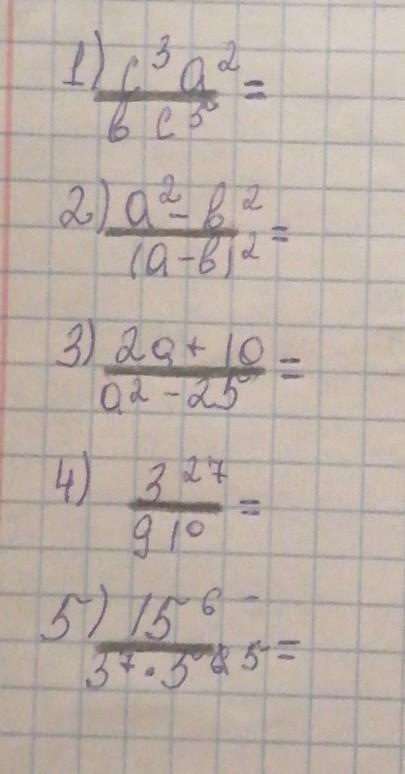 1) c³a²
=
в c⁵
2) a² - в²
=
(a-в)²
3) 2a + 10
=
a² - 25
4) 3²⁷
=
9¹⁰
5) 15⁶ -
=
3⁷ · 5⁵